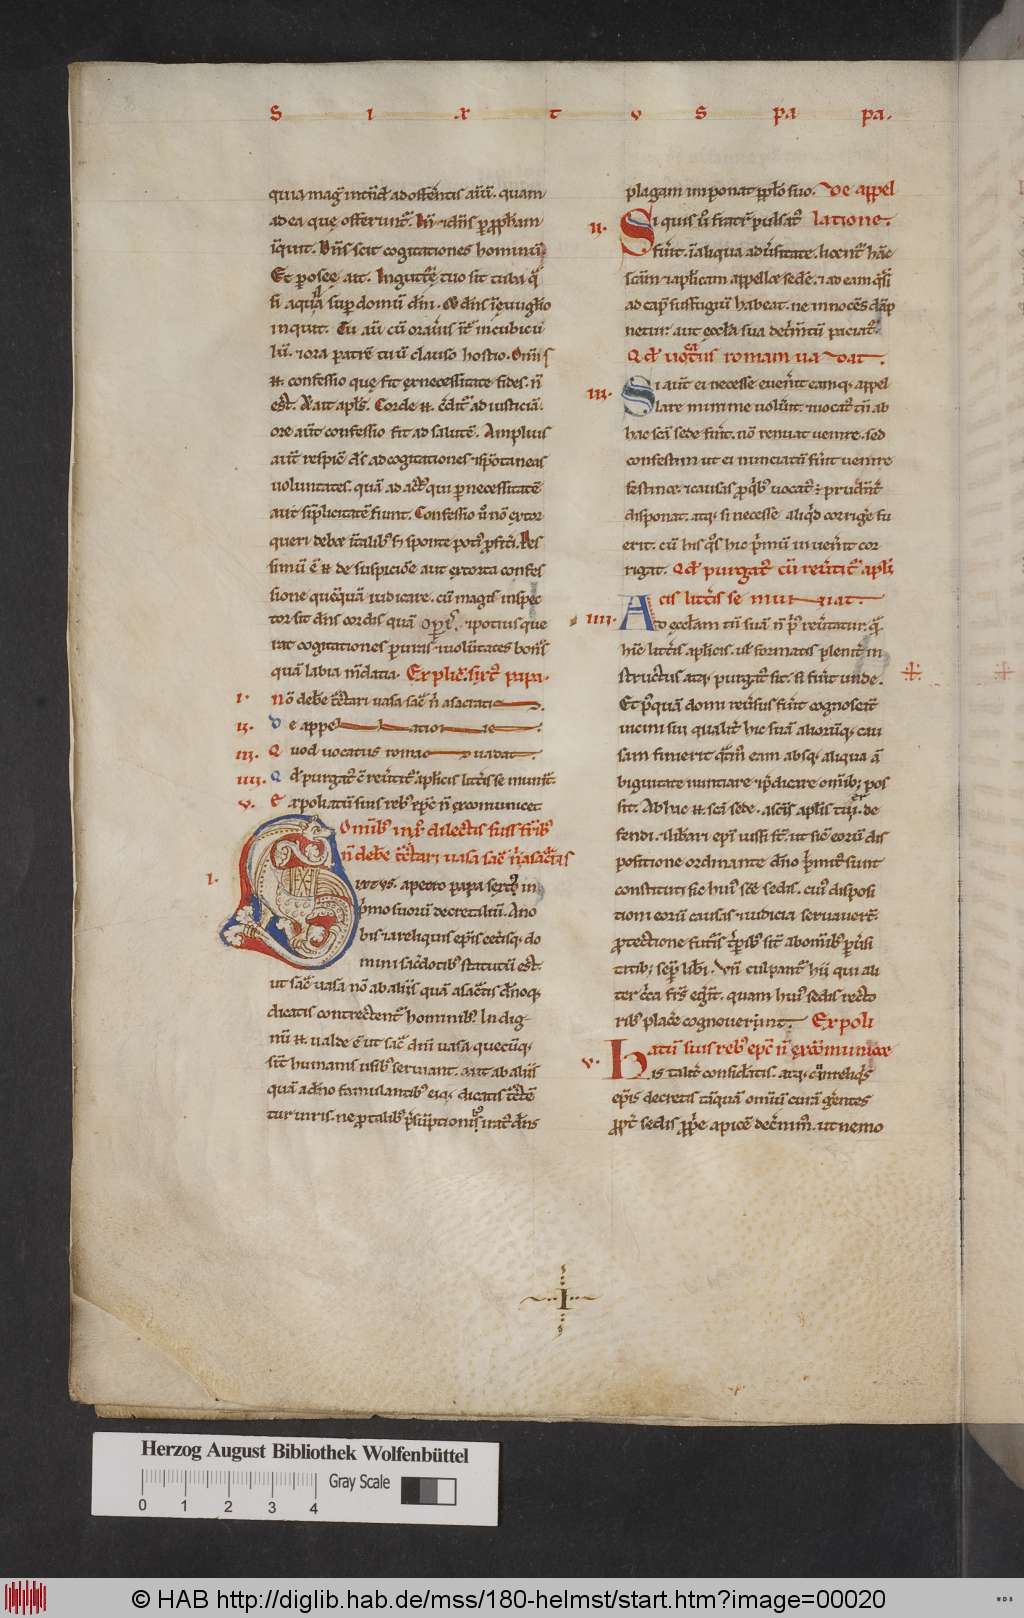 S I X T V S PA PA.
quia magis intendit ad offerentis animum. quam
ad ea quę offeruntur.
inquit. Dominus scit cogitationes hominum.
Et per osee ait. In gutture tuo sit tuba quasi
si aquila super domum domini. Et dominus in euuglio
inquit. Tu autem cum oraueris intra in cubicu
lum. & ora patrem tuum clauso hostio. Omnis
confessio quę fit ex necessitate fides. non
est. Corde creditur ad iusticiam.
ore autem confessio fit ad salutem. Amplius
autem respicit deus ad cogitationes & spontaneas
uoluntates. quam ad actus qui per necessitatem
aut simplicitatem fiunt. Confessio uero non extor
queri debet in talibus sed sponte potius profiteri. Pes
simum est enim de suspicione aut extorta confes
sione quemquam iudicare. cum magis inspec
tor sit dominus cordis quam operis. & potius que
rat cogitationes puras & uoluntates bonas
quam labia mendatia. Explic. sixti papa.
I. Nō debē tractari uasa sac nisi a sacratis.
II. De appellatione.
III. Quod uocatus romam uadat.
IIII. Qd purgatus cum reuertitur aplicis litteris se muniat.
V. Expoliatum suis rebus epc n excommunicet
Omnibus in xpo dilectis suis fribus
n debē tractari uasa sac nisi a sacratis
I. IXTVS. a petro papa sextus in
primo suorum decretalium. A no
bis & a reliquis epis ceterisque do
mini sacerdotibus statutum est.
ut sac uasa non ab aliis quam a sacratis dnoque
dicatis contrectentur hominibus. Indig-
num enim ualde est ut sac dni uasa quecumque
sint humanis usibus seruiant. aut ab aliis
quam a dno famulantibus eique dicatis tracten
tur uiris. ne pro talibus presumptionibus iratus dns
plagam imponat populo suo. De appel
II. Si quis uestrum fratrum pulsatus latione.
fuerit in aliqua aduersitate. licenter hanc
sanctam & aplicam appellet sedem. & ad eam quasi
ad caput suffugium habeat. ne innocens damp
netur. aut ęcclesia sua detrimentum paciatur.
Qd uocatus romam uadat.
III. Si autem ei necesse euenerit eamque appel
lare minime uoluerit. & uocatus tamen ab
hac sancta sede fuerit. non renuat uenire. sed
confestim ut ei nunciatum fuerit uenire
festinet. & causas pro quibus uocatus est prudenter
disponat. atque si necesse aliquid corrigere fu
erit. cum his quos hic primum inuenerit cor
rigat. Qd purgatus cum reuertitur apli
cis litteris se muniat.
IIII. Ad ęcclesiam tamen suam non prius reuertatur. quam
hinc litteris aplicis. uel formatis pleniter in
structus atque purgatus sit. si fuerit unde.
Et postquam domi reuersus fuerit cognoscent
uicini sui qualiter hic suam aliorumque cau
sam finierit quatinus eam absque aliqua am
biguitate nuntiare & predicare omnibus pos
sit. Ab hac enim sancta sede. a sanctis aplis tueri. de
fendi. & liberari epi iussi sunt. ut sicut eorum dis
positione ordinante dno primitus sunt
constituti sic huius sancte sedis. cuius disposi
tioni eorum causas & iudicia seruauerunt.
protectione futuris temporibus sint ab omnibus peruersi
tatibus semper liberi. Unde culpantur hii qui ali
ter circa fratres egerunt. quam huius sedis recto
ribus placere cognouerunt. Expoli
atum suis rebus epc n excommunicet
V. His taliter consideratis. atque cum reliquis
epis decretis tamquam omnium curam gerentes
propter sedis proprie apicem decernimus. ut nemo
I
Herzog August Bibliothek Wolfenbüttel
Gray Scale
0 1 2 3 4
© HAB http://diglib.hab.de/mss/180-helmst/start.htm?image=00020